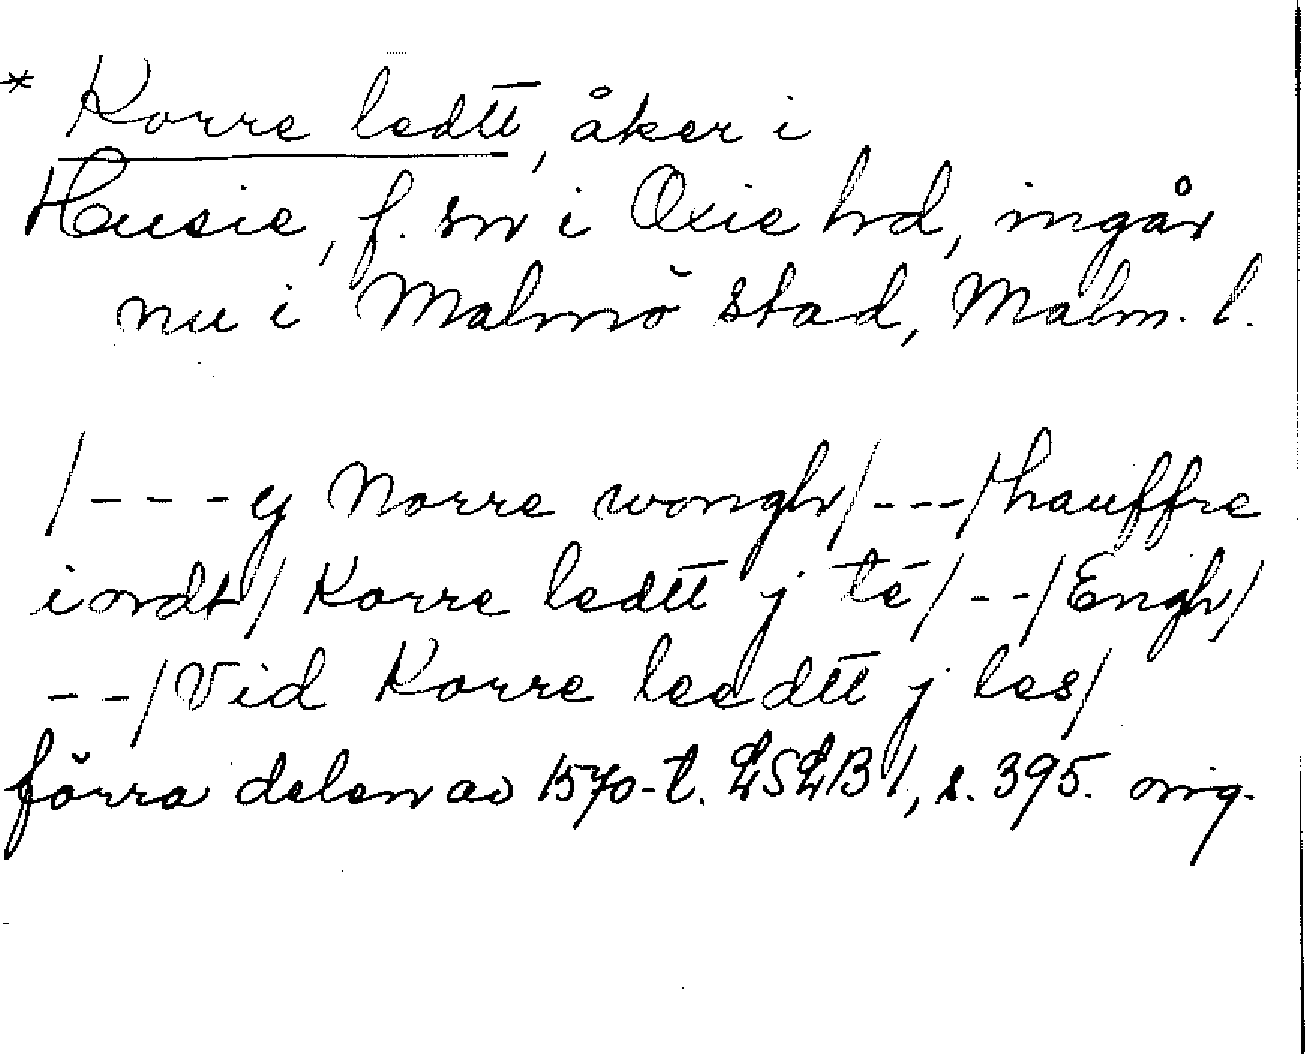 * Korre ledtt, åker i
Husie, f. sn i Oxie hd, ingår
nu i Malmö stad, Malm. l.
/---ej Norre wongh/---/hauffre
iordt/ Korre ledtt j té/--/Engh/
--/Vid Korre leedtt j les/
förra delen av 1570-t. LSLB 1, s. 395. orig.